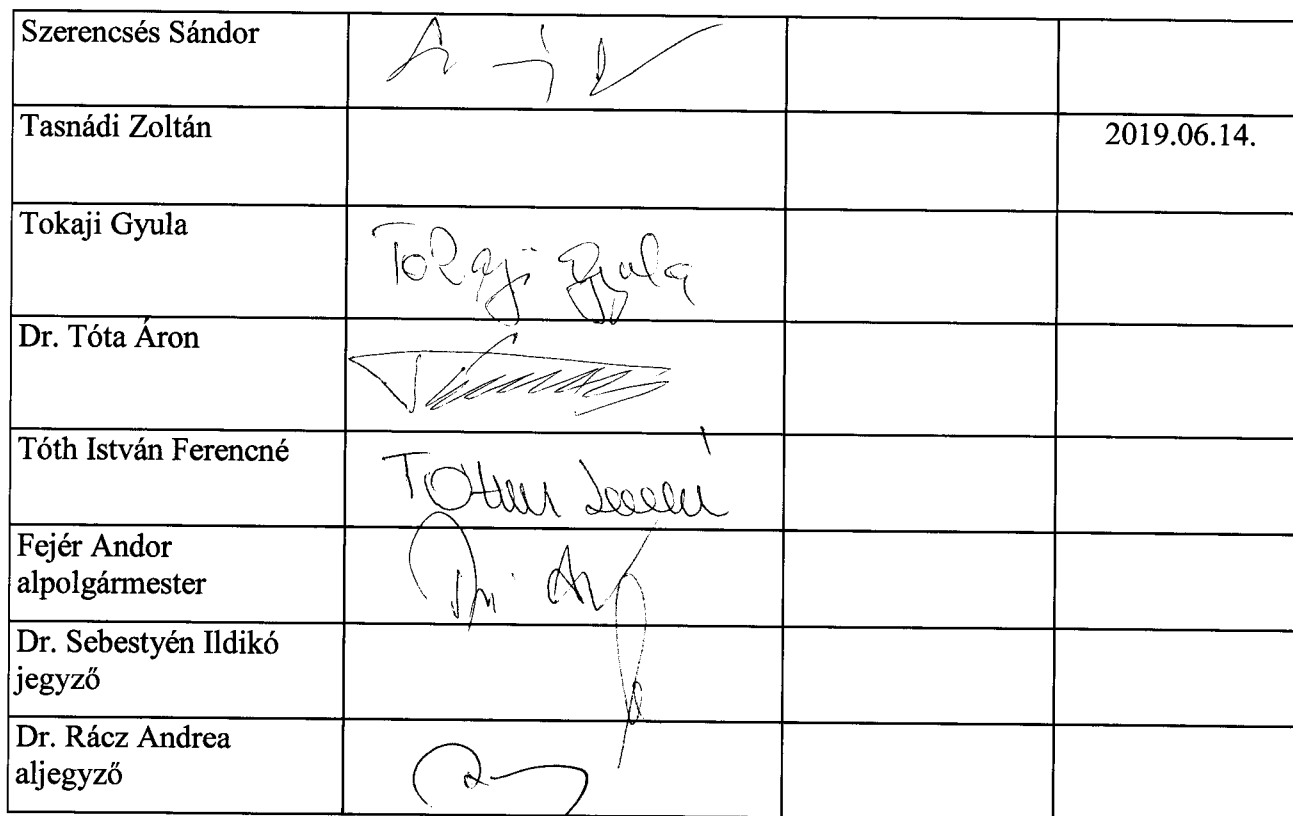 Szerencsés Sándor
Tasnádi Zoltán
2019.06.14.
Tokaji Gyula
Tokaji Gyula
Dr. Tóta Áron
Tóth István Ferencné
Fejér Andor
alpolgármester
Dr. Sebestyén Ildikó
jegyző
Dr. Rácz Andrea
aljegyző